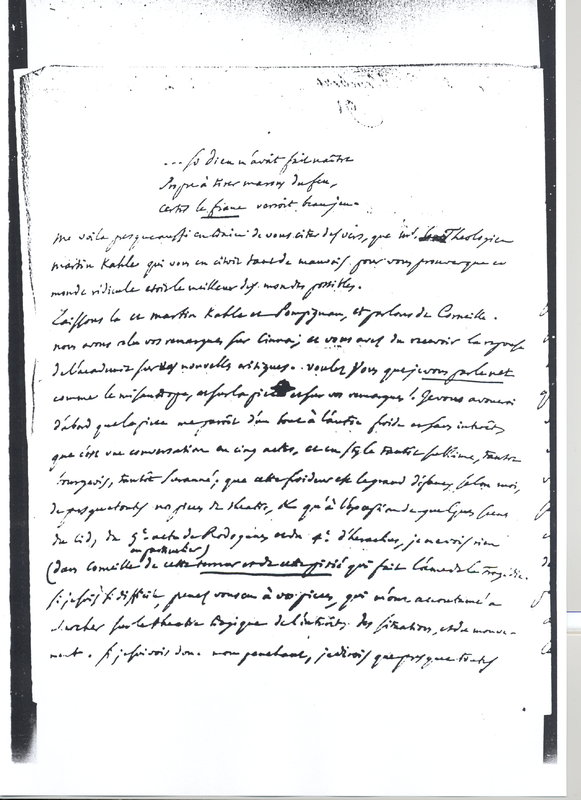 ... Si dieu n'avoit fait naitre
Propre à tirer marrons du feu,
certes le france verroit beau jeu.
me voila presque aussi en train de vous citer des vers, que le Theologien
martin Kahle qui vous en citoit tant de mauvais pour vous prouver que ce
monde ridicule etoit le meilleur des mondes possibles.
Laissons la ce martin Kahle et Pompignan, et parlons de Corneille.
nous avons relu vos remarques sur Cinna; et vous avez du recevoir la reponse
de l'academie sur les nouvelles critiques. voulez vous que je vous parle net
comme le misantrope, et sur la piece et sur vos remarques? Je vous avouerai
d'abord que la piece me paroit d'un bout à l'autre froide et sans interêt;
que c'est une conversation en cinq actes, et en style tantôt sublime, tantôt
bourgeois, tantôt suranné; que cette froideur est le grand defaut, selon moi,
de presque toutes nos pieces de theatre, et qu'à l'exception de quelques scenes
du Cid, du 5e. acte de Rodogune et du 4e. d'heraclius, je ne vois rien
(dans Corneille en particulier) de cette terreur et de cette pitié qui fait l'ame de la tragedie.
Si je suis si difficile, prenez vous en à vos pieces, qui m'ont accoutumé à
chercher sur le theatre tragique de l'interêt, des situations, et du mouve-
ment. Si je suivois donc mon penchant, je dirois que presque toutes